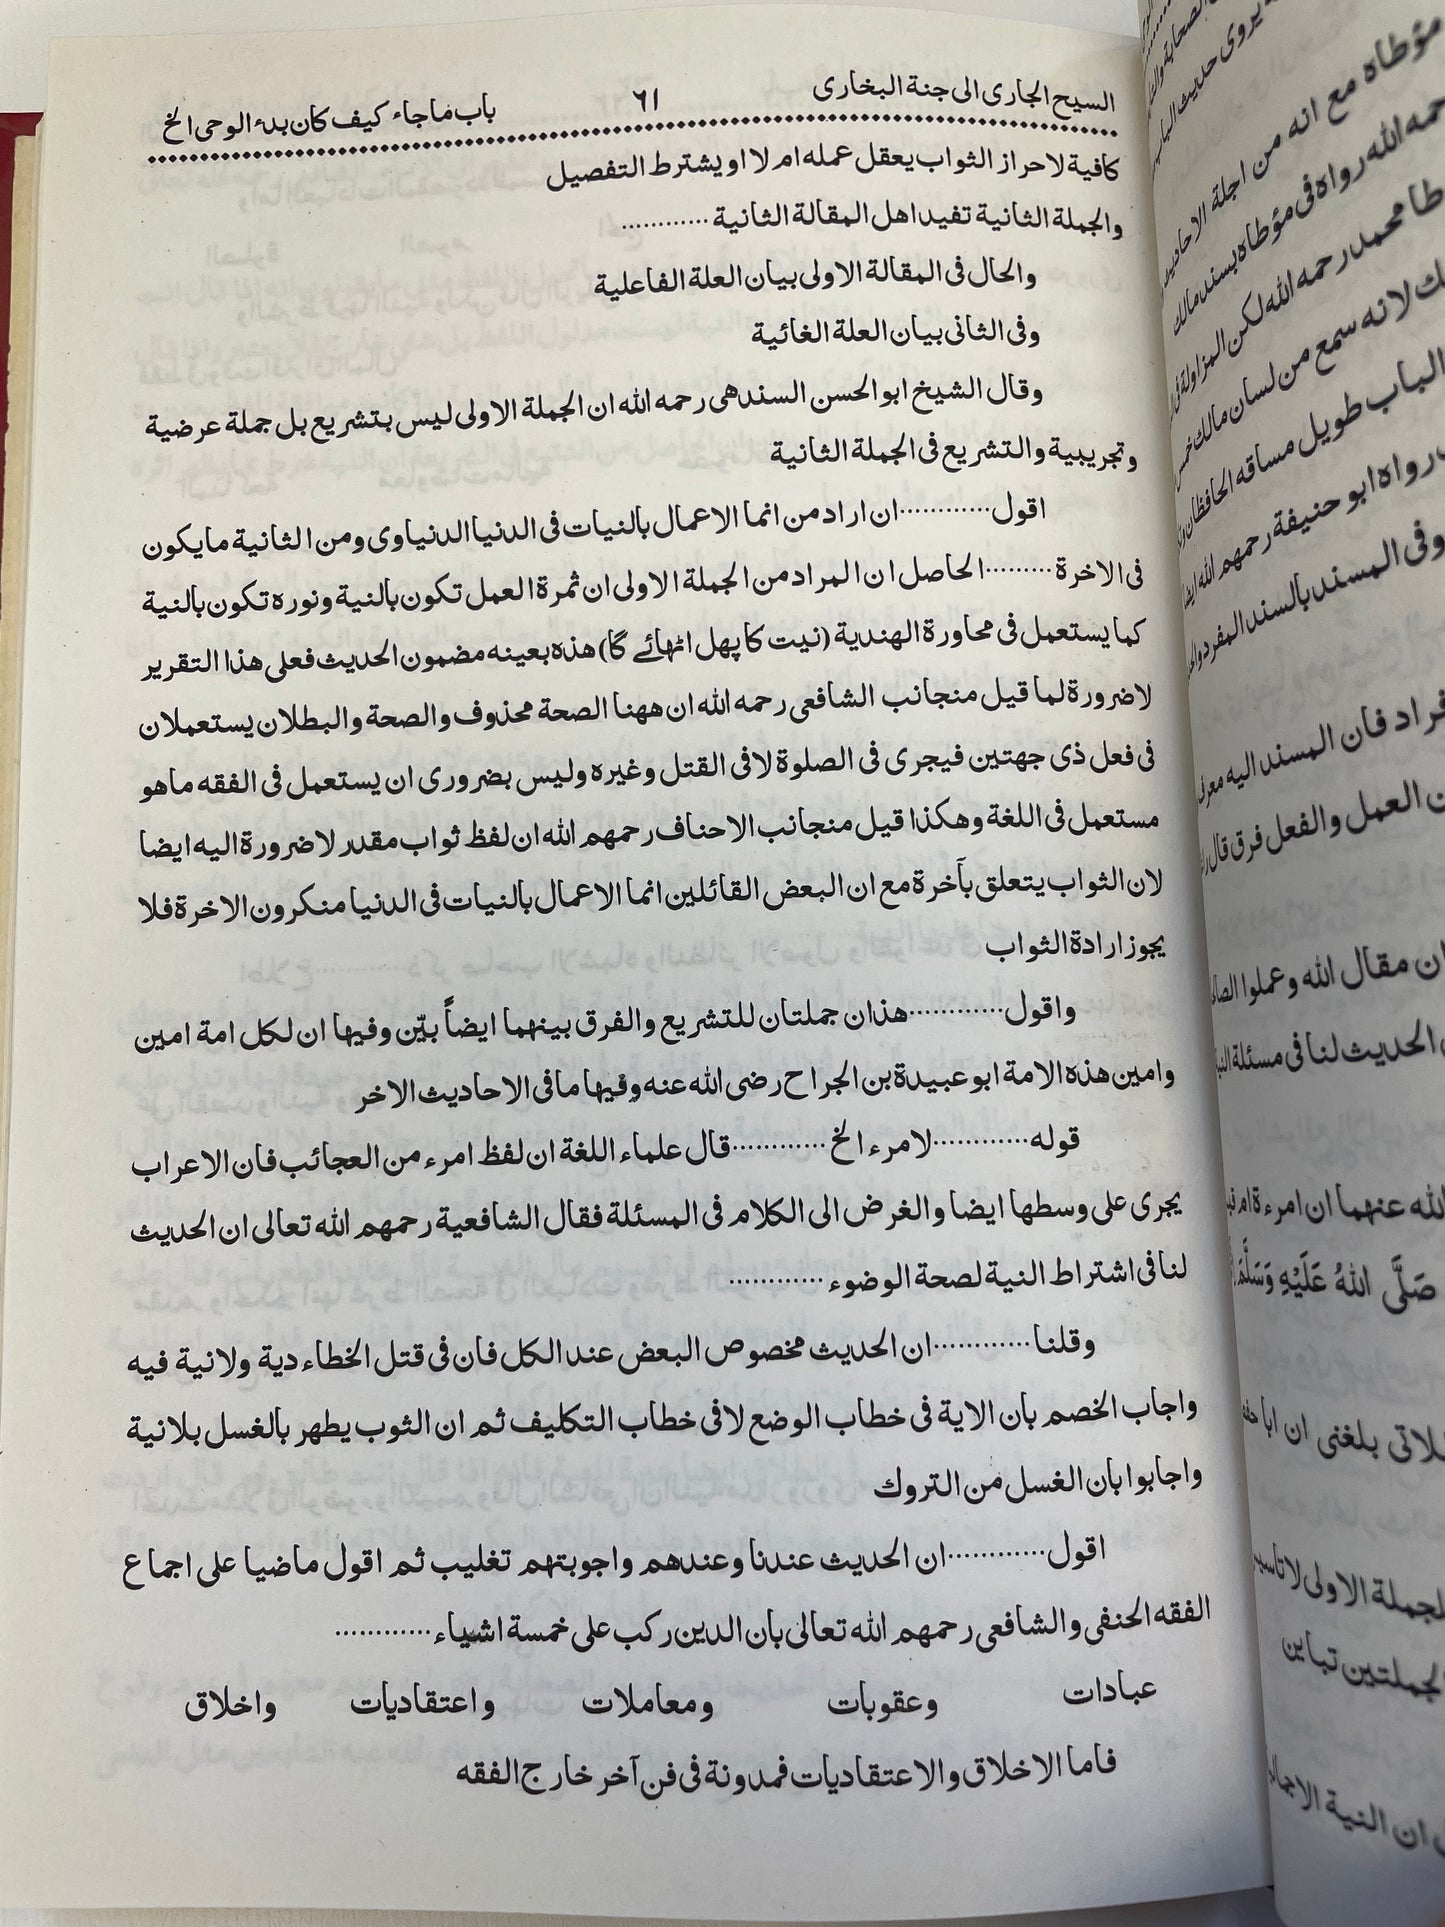 السيح الجارى الى جنة البخارى ٦١ باب ماجاء كيف كان بدء الوحى الخ
كافية لاحراز الثواب يعقل عمله ام لا او يشترط التفصيل
والجملة الثانية تفيد اهل المقالة الثانية ............
والحال فى المقالة الاولى بيان العلة الفاعلية
وفى الثانى بيان العلة الغائية
وقال الشيخ ابو الحسن السندهى رحمه الله ان الجملة الاولى ليس بتشريع بل جملة عرضية
وتجريبية والتشريع فى الجملة الثانية
اقول............ان اراد من انما الاعمال بالنيات فى الدنيا الدنياوى ومن الثانية ما يكون
فى الاخرة .........الحاصل ان المراد من الجملة الاولى ان ثمرة العمل تكون بالنية ونوره تكون بالنية
كما يستعمل فى محاورة الهندية (نيت كا پهل اٹهائے گا) هذه بعينه مضمون الحديث فعلى هذا التقرير
لا ضرورة لما قيل منجانب الشافعى رحمه الله ان ههنا الصحة محذوف والصحة والبطلان يستعملان
فى فعل ذى جهتين فيجرى فى الصلوة لا فى القتل وغيره وليس بضرورى ان يستعمل فى الفقه ما هو
مستعمل فى اللغة وهكذا قيل منجانب الاحناف رحمهم الله ان لفظ ثواب مقدر لا ضرورة اليه ايضا
لان الثواب يتعلق بآخرة مع ان البعض القائلين انما الاعمال بالنيات فى الدنيا منكرون الاخرة فلا
يجوز ارادة الثواب
واقول............هذان جملتان للتشريع والفرق بينهما ايضاً بيّن وفيها ان لكل امة امين
وامين هذه الامة ابو عبيدة بن الجراح رضى الله عنه وفيها ما فى الاحاديث الاخر
قوله............لامرء الخ ............قال علماء اللغة ان لفظ امرء من العجائب فان الاعراب
يجرى على وسطها ايضا والغرض الى الكلام فى المسئلة فقال الشافعية رحمهم الله تعالى ان الحديث
لنا فى اشتراط النية لصحة الوضوء ............
وقلنا............ان الحديث مخصوص البعض عند الكل فان فى قتل الخطاء دية ولا نية فيه
واجاب الخصم بان الاية فى خطاب الوضع لا فى خطاب التكليف ثم ان الثوب يطهر بالغسل بلانية
واجابوا بان الغسل من التروك
اقول............ان الحديث عندنا وعندهم واجوبتهم تغليب ثم اقول ماضيا على اجماع
الفقه الحنفى والشافعى رحمهم الله تعالى بان الدين ركب على خمسة اشياء ............
عبادات وعقوبات ومعاملات واعتقاديات واخلاق
فاما الاخلاق والاعتقاديات فمدونة فى فن آخر خارج الفقه